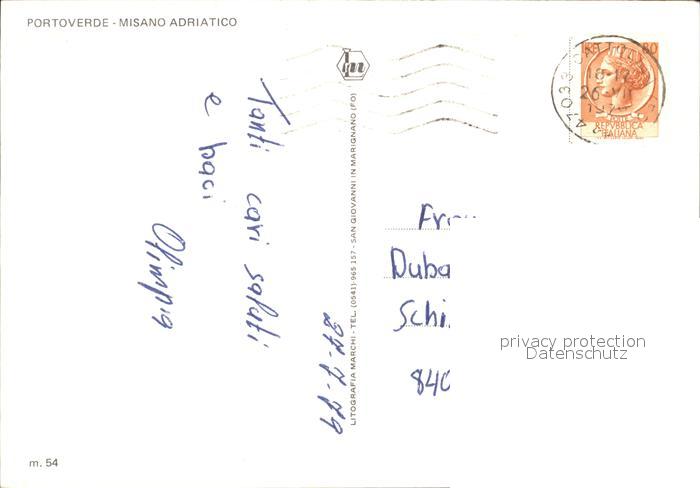 PORTOVERDE - MISANO ADRIATICO
Tanti cari saluti
e baci
Olimpia
27-7-79
LITOGRAFIA MARCHI - TEL. (0541) 965 157 - SAN GIOVANNI IN MARIGNANO (FO)
80
POSTE
REPVBBLICA
ITALIANA
47033
18-19
Fr
Duba
Schi
840
privacy protection
Datenschutz
m. 54